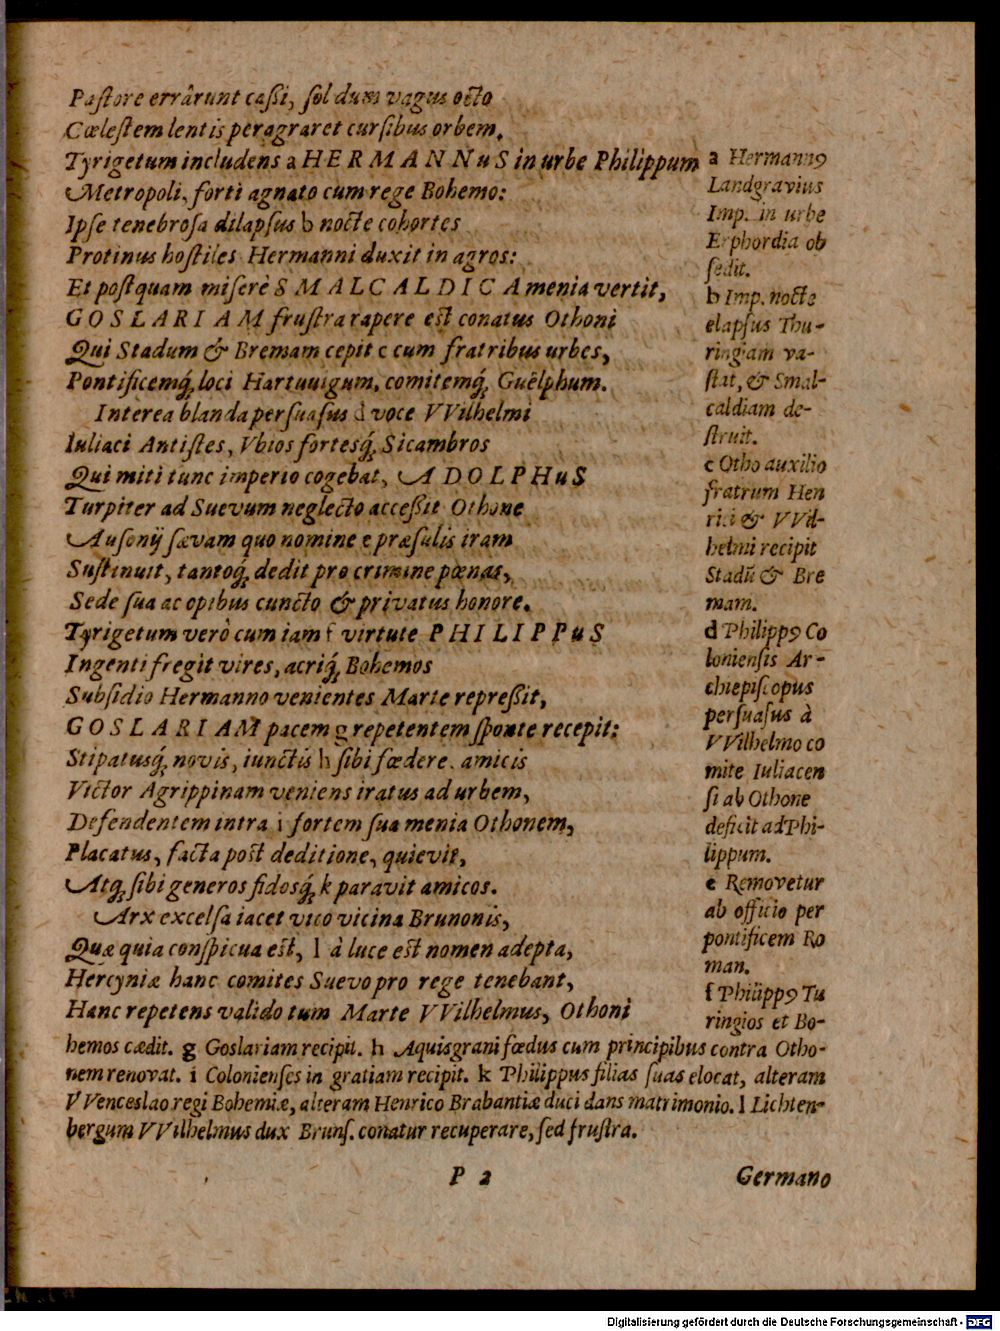 Paſtore errârunt caßi, ſol dum vagus octo
Cœleſtem lentis peragraret curſibus orbem.
Tyrigetum includens a HERMANNuS in urbe Philippum
Metropoli, forti agnato cum rege Bohemo:
Ipſe tenebroſa dilapſus b nocte cohortes
Protinus hoſtiles Hermanni duxit in agros:
Et poſtquam miſerè SMALCALDICA menia vertit,
GOSLARIAM fruſtra rapere eſt conatus Othoni
Qui Stadum & Bremam cepit c cum fratribus urbes,
Pontificemq́, loci Hartuuigum, comitemq́, Guëlphum.
Interea blanda perſuaſus d voce VVilhelmi
Iuliaci Antiſtes, Vbios fortesq́, Sicambros
Qui miti tunc imperio cogebat, ADOLPHuS
Turpiter ad Suevum neglecto acceßit Othone
Auſonij ſævam quo nomine e præſulis iram
Suſtinuit, tantoq́, dedit pro crimine pœnas,
Sede ſua ac opibus cuncto & privatus honore.
Tyrigetum verò cum iam f virtute PHILIPPuS
Ingenti fregit vires, acriq́, Bohemos
Subſidio Hermanno venientes Marte repreßit,
GOSLARIAM pacem g repetentem ſponte recepit:
Stipatusq́, novis, iunctis h ſibi fœdere, amicis
Victor Agrippinam veniens iratus ad urbem,
Defendentem intra i fortem ſua menia Othonem,
Placatus, facta poſt deditione, quievit,
Atq́, ſibi generos fidosq́, k paravit amicos.
Arx excelſa iacet vico vicina Brunonis,
Quæ quia conſpicua eſt, l à luce eſt nomen adepta,
Hercyniæ hanc comites Suevo pro rege tenebant,
Hanc repetens valido tum Marte VVilhelmus, Othoni
a Hermannꝰ
Landgravius
Imp. in urbe
Erphordia ob
ſedit.
b Imp. nocte
elapſus Thu-
ringiam va-
ſtat, & Smal-
caldiam de-
ſtruit.
c Otho auxilio
fratrum Hen
rici & VVil-
helmi recipit
Stadū & Bre
mam.
d Philippꝰ Co
lonienſis Ar-
chiepiſcopus
perſuaſus à
VVilhelmo co
mite Iuliacen
ſi ab Othone
deficit ad Phi-
lippum.
e Removetur
ab officio per
pontificem Ro
man.
f Philippꝰ Tu
ringios et Bo-
hemos cædit. g Goslariam recipit. h Aquisgrani fœdus cum principibus contra Otho-
nem renovat. i Colonienſes in gratiam recipit. k Philippus filias ſuas elocat, alteram
VVenceslao regi Bohemiæ, alteram Henrico Brabantiæ duci dans matrimonio. l Lichten-
bergum VVilhelmus dux Brunſ. conatur recuperare, ſed fruſtra.
P 2
Germano
Digitalisierung gefördert durch die Deutsche Forschungsgemeinschaft - DFG